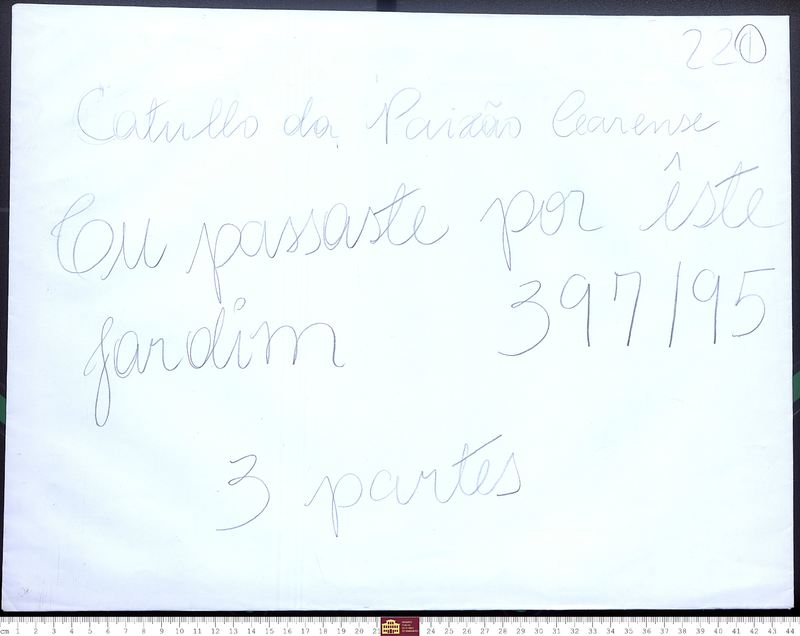 220
Catullo da Paixão Cearense
Tu passaste por êste
jardim 397/95
3 partes
cm 1 2 3 4 5 6 7 8 9 10 11 12 13 14 15 16 17 18 19 20 24 25 26 27 28 29 30 31 32 33 34 35 36 37 38 39 40 41 42 43 44